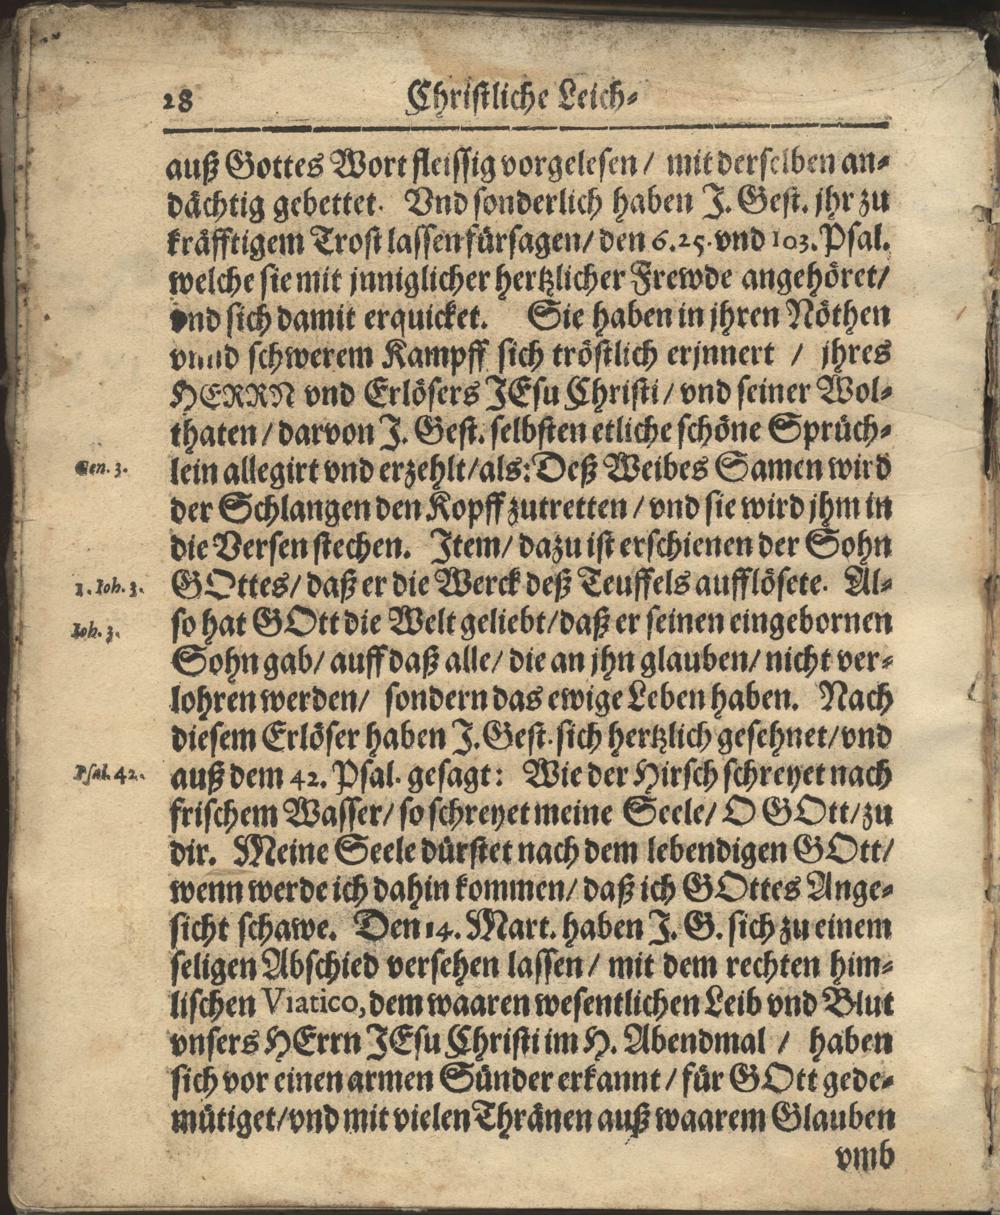 28 Christliche Leich-
auß Gottes Wort fleissig vorgelesen / mit derselben an-
dächtig gebettet. Vnd sonderlich haben J. Gest. jhr zu
kräfftigem Trost lassen fürsagen/ den 6. 25. vnd 103. Psal.
welche sie mit jnniglicher hertzlicher Frewde angehöret/
vnd sich damit erquicket. Sie haben in jhren Nöthen
vnnd schwerem Kampff sich tröstlich erjnnert / jhres
HERRN vnd Erlösers JEsu Christi / vnd seiner Wol-
thaten / darvon J. Gest. selbsten etliche schöne Sprüch-
Gen. 3. lein allegirt vnd erzehlt/als: Deß Weibes Samen wird
der Schlangen den Kopff zutretten / vnd sie wird jhm in
die Versen stechen. Item/ dazu ist erschienen der Sohn
1. Ioh. 3. GOttes/ daß er die Werck deß Teuffels aufflösete. Al-
Ioh. 3. so hat GOtt die Welt geliebt/daß er seinen eingebornen
Sohn gab/ auff daß alle/ die an jhn glauben/ nicht ver-
lohren werden/ sondern das ewige Leben haben. Nach
diesem Erlöser haben J. Gest. sich hertzlich gesehnet/vnd
Psal. 42. auß dem 42. Psal. gesagt: Wie der Hirsch schreyet nach
frischem Wasser/ so schreyet meine Seele/ O GOtt/zu
dir. Meine Seele dürstet nach dem lebendigen GOtt/
wenn werde ich dahin kommen/ daß ich GOttes Ange-
sicht schawe. Den 14. Mart. haben J. G. sich zu einem
seligen Abschied versehen lassen / mit dem rechten him-
lischen Viatico, dem waaren wesentlichen Leib vnd Blut
vnsers HErrn JEsu Christi im H. Abendmal / haben
sich vor einen armen Sünder erkannt / für GOtt gede-
mütiget/vnd mit vielen Thränen auß waarem Glauben
vmb